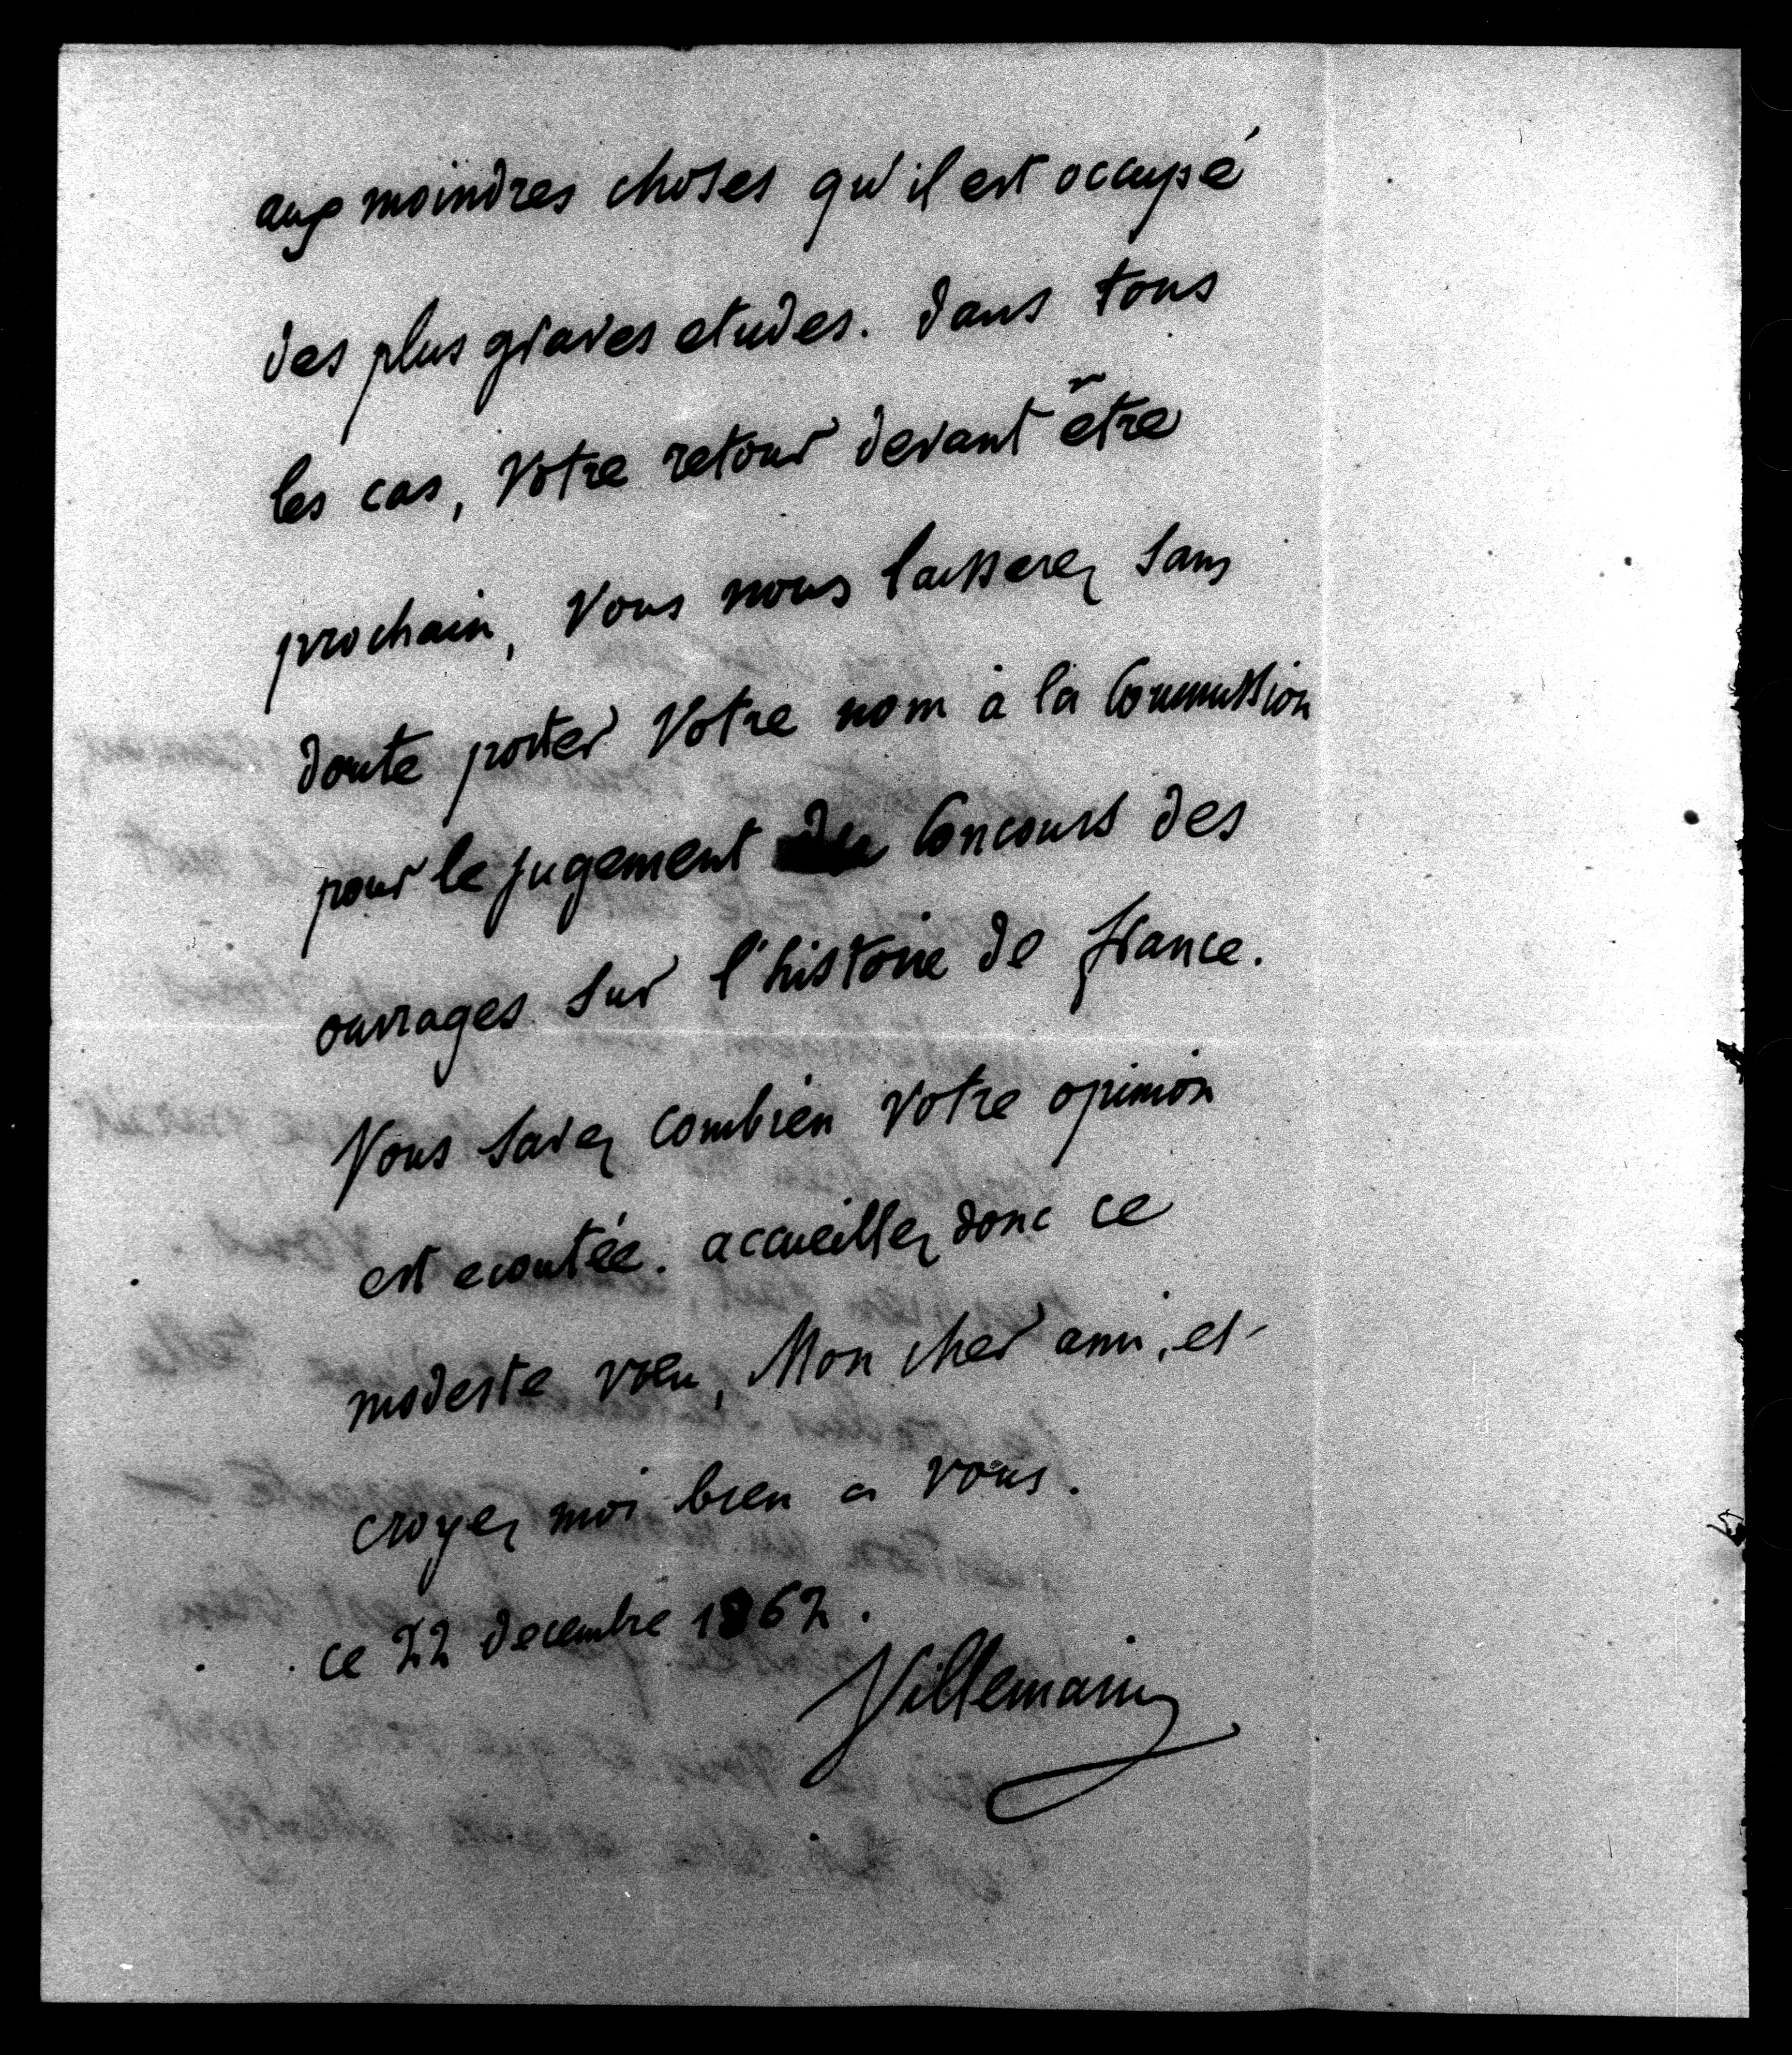 aux moindres choses qu'il est occupé
des plus graves etudes. dans tous
les cas, Votre retour devant être
prochain, Vous nous laisserez sans
doute porter Votre nom à la Commission
pour le jugement du Concours des
ouvrages sur l'histoire de france.
Vous savez combien Votre opinion
est ecoutée. accueillez donc ce
modeste vœu, Mon cher ami, et
croyez moi bien a vous.
ce 22 decembre 1862.
Villemain